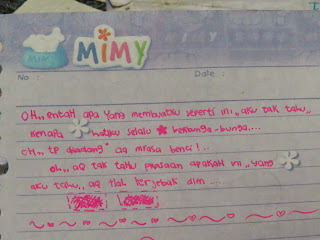 MIMY
MIMY
No :
Date :
OH,, entah apa yang membuatku seperti ini,, aku tak tahu,,
kenapa hatiku selalu berbunga-bunga....
OH,, tp kadang" aq mrasa benci!..
oh,, aq tak tahu prasaan apakah ini,, yang
aku tahu,, aq tlah terjebak dlm ....